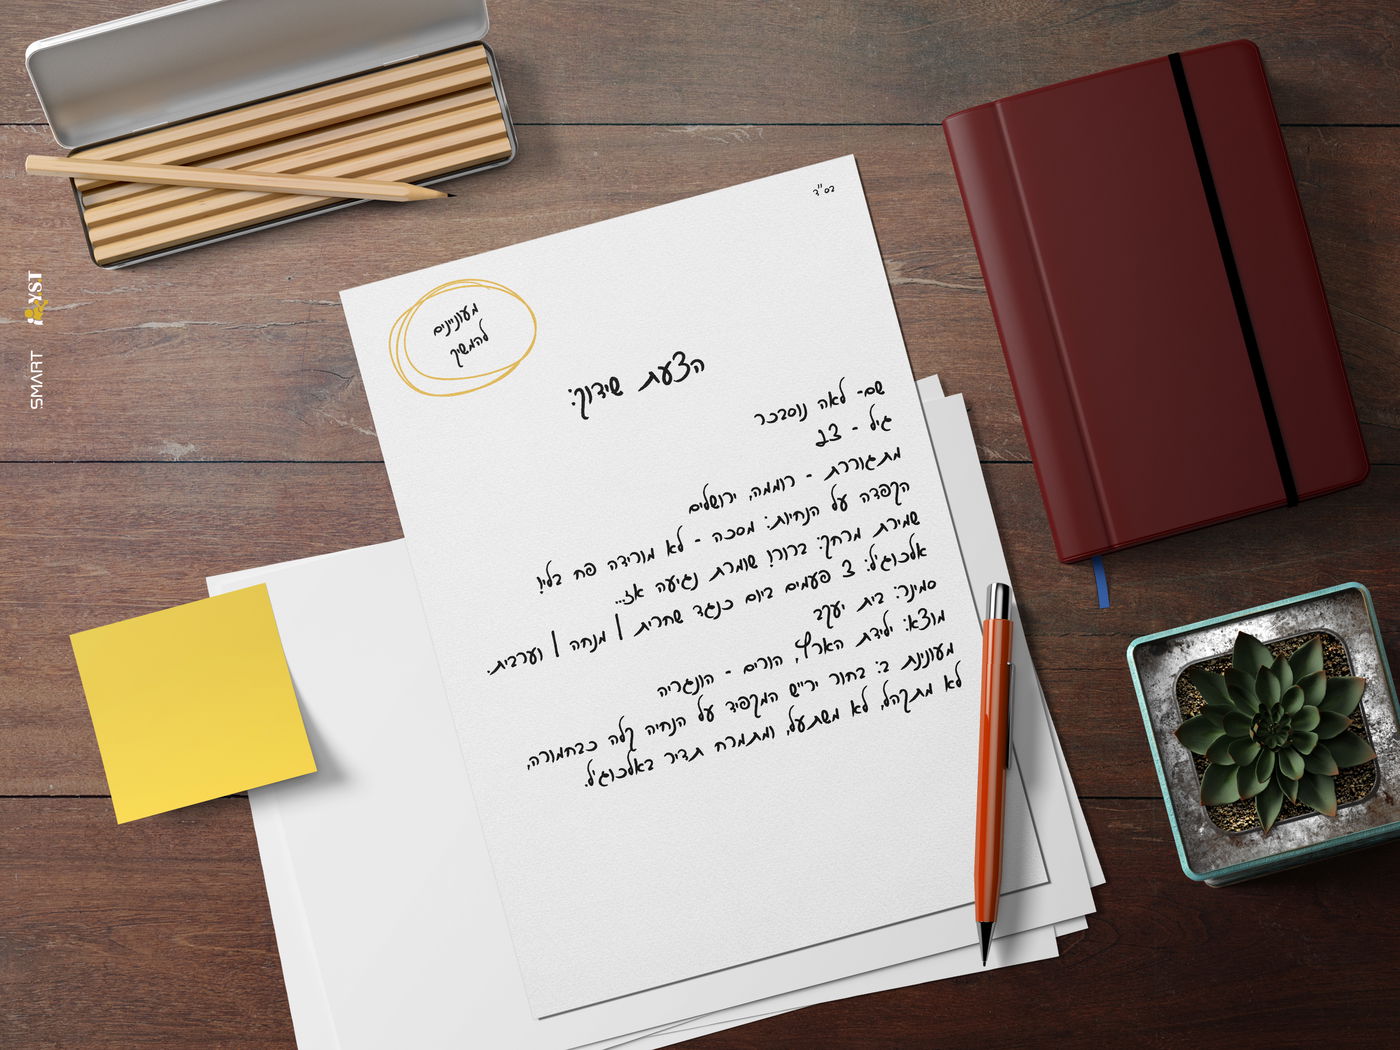 בס"ד
מעוניינים
להמשיך
הצעת שידוך:
שם- לאה נוסבכר
גיל - 23
מתגוררת - רוממה, ירושלים
הקפדה על הנחיות: מסכה - לא מורידה פח בליו!
שמירת מרחק: ברור! שומרת נגיעה אז...
אלכוג'ל: 3 פעמים ביום כנגד שחרית | מנחה | וערבית.
סמינר: בית יעקב
מוצא: ילידת הארץ, הורים - הונגריה
מעונינת ב: בחור יר״ש המקפיד על הנחיה קלה כבחמורה,
לא מתקהל, לא משתעל, ומתמרח תדיר באלכוג'ל.
SMART